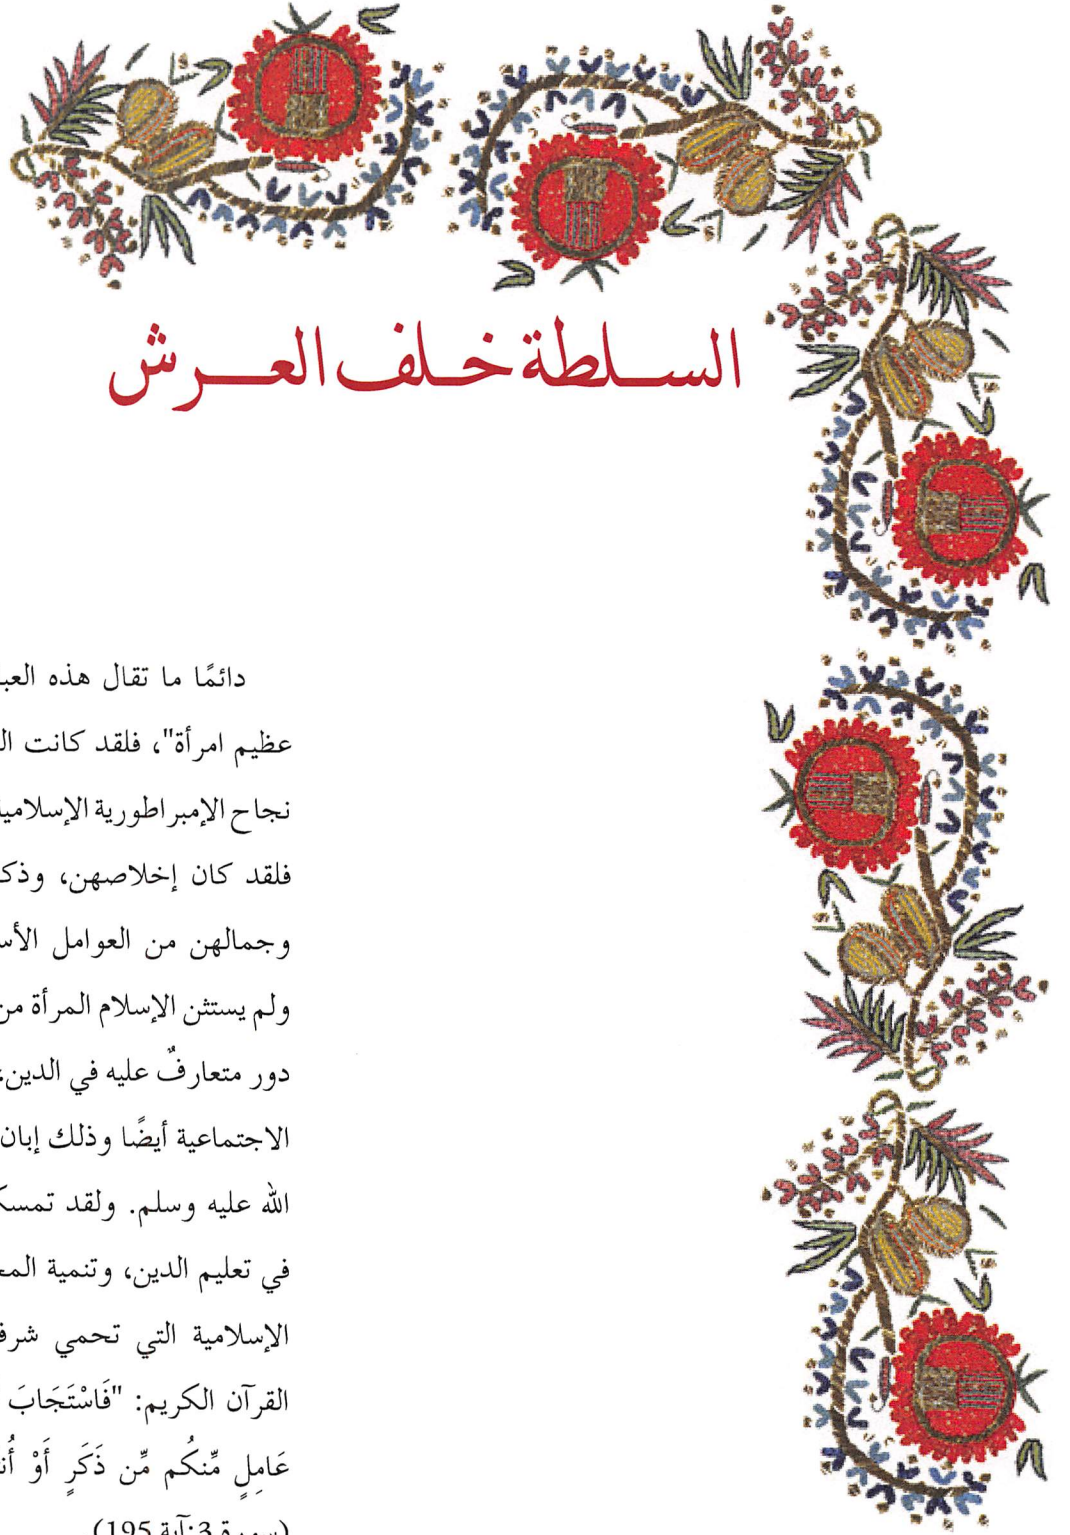 السلطة خلف العرش
دائمًا ما تقال هذه
عظيم امرأة"، فلقد كانت
نجاح الإمبراطورية
فلقد كان إخلاصهن،
وجمالهن من العوامل
ولم يستثن الإسلام المرأة من
دور متعارفٌ عليه في الدين،
الاجتماعية أيضًا وذلك إبان
الله عليه وسلم. ولقد
في تعليم الدين، وتنمية
الإسلامية التي تحمي
القرآن الكريم: "فَاسْتَجَابَ
عَامِلٍ مِّنكُم مِّن ذَكَرٍ أَوْ
(سورة 3:آية 195)